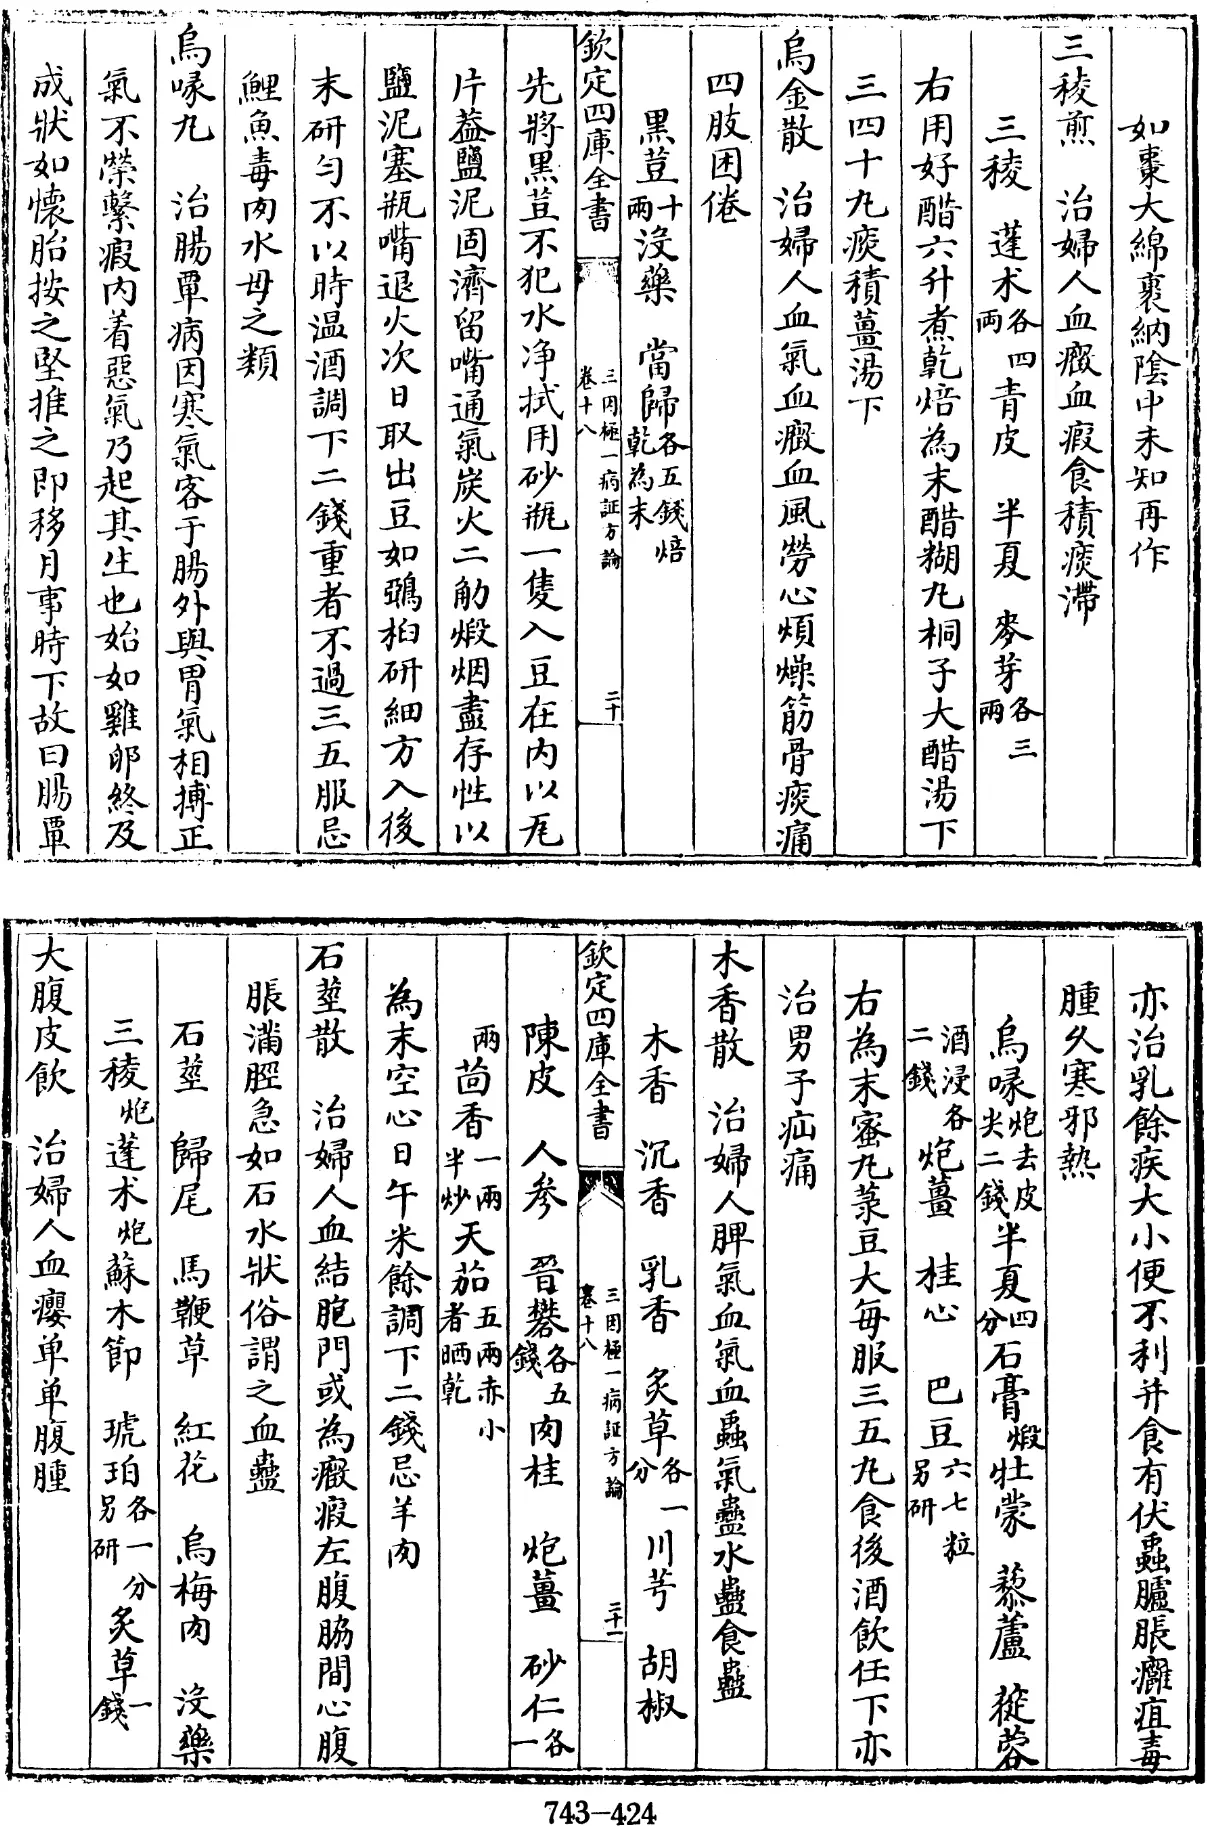 如棗大綿裹納隂中未知再作
三稜煎　治婦人血癥血瘕食積痰滯
三稜　蓬术各四兩青皮　半夏　麥芽各三兩
右用好醋六升煮乾焙為末醋糊丸桐子大醋湯下
三四十丸痰積薑湯下
烏金散　治婦人血氣血癥血風勞心煩燥筋骨痰痛
四肢困倦
黒荳十兩沒藥　當歸各五錢焙乾為末
欽定四庫全書　三因極一病証方論卷十八　二十
先將黒荳不犯水净拭用砂瓶一隻入豆在内以瓦
片葢鹽泥固濟留嘴通氣炭火二觔煅烟盡存性以
鹽泥塞瓶嘴退火次日取出豆如鵶桕研細方入後
末研匀不以時温酒調下二錢重者不過三五服忌
鯉魚毒肉水母之類
烏喙丸　治腸覃病因寒氣客于腸外與胃氣相搏正
氣不榮繫瘕内着惡氣乃起其生也始如雞卵終及
成狀如懷胎按之堅推之即移月事時下故曰腸覃
亦治乳餘疾大小便不利并食有伏蟲臚脹癰疽毒
腫久寒邪熱
烏喙炮去皮尖二錢半夏四分石膏煅牡蒙　藜蘆　蓯蓉
酒浸各二錢炮薑　桂心　巴豆六七粒另研
右為末蜜丸菉豆大每服三五丸食後酒飲任下亦
治男子疝痛
木香散　治婦人脾氣血氣血蟲氣蠱水蠱食蠱
木香　沉香　乳香　炙草各一分川芎　胡椒
欽定四庫全書　三因極一病証方論卷十八　二十一
陳皮　人參　晉礬各五錢肉桂　炮薑　砂仁各一
兩茴香一兩半炒天茄五兩赤小者晒乾
為末空心日午米餘調下二錢忌羊肉
石莖散　治婦人血結胞門或為癥瘕左腹脇間心腹
脹滿脛急如石水狀俗謂之血蠱
石莖　歸尾　馬鞭草　紅花　烏梅肉　沒藥
三稜炮蓬术炮蘇木節　琥珀各一分另研炙草一錢
大腹皮飲　治婦人血癭单单腹腫
743-424